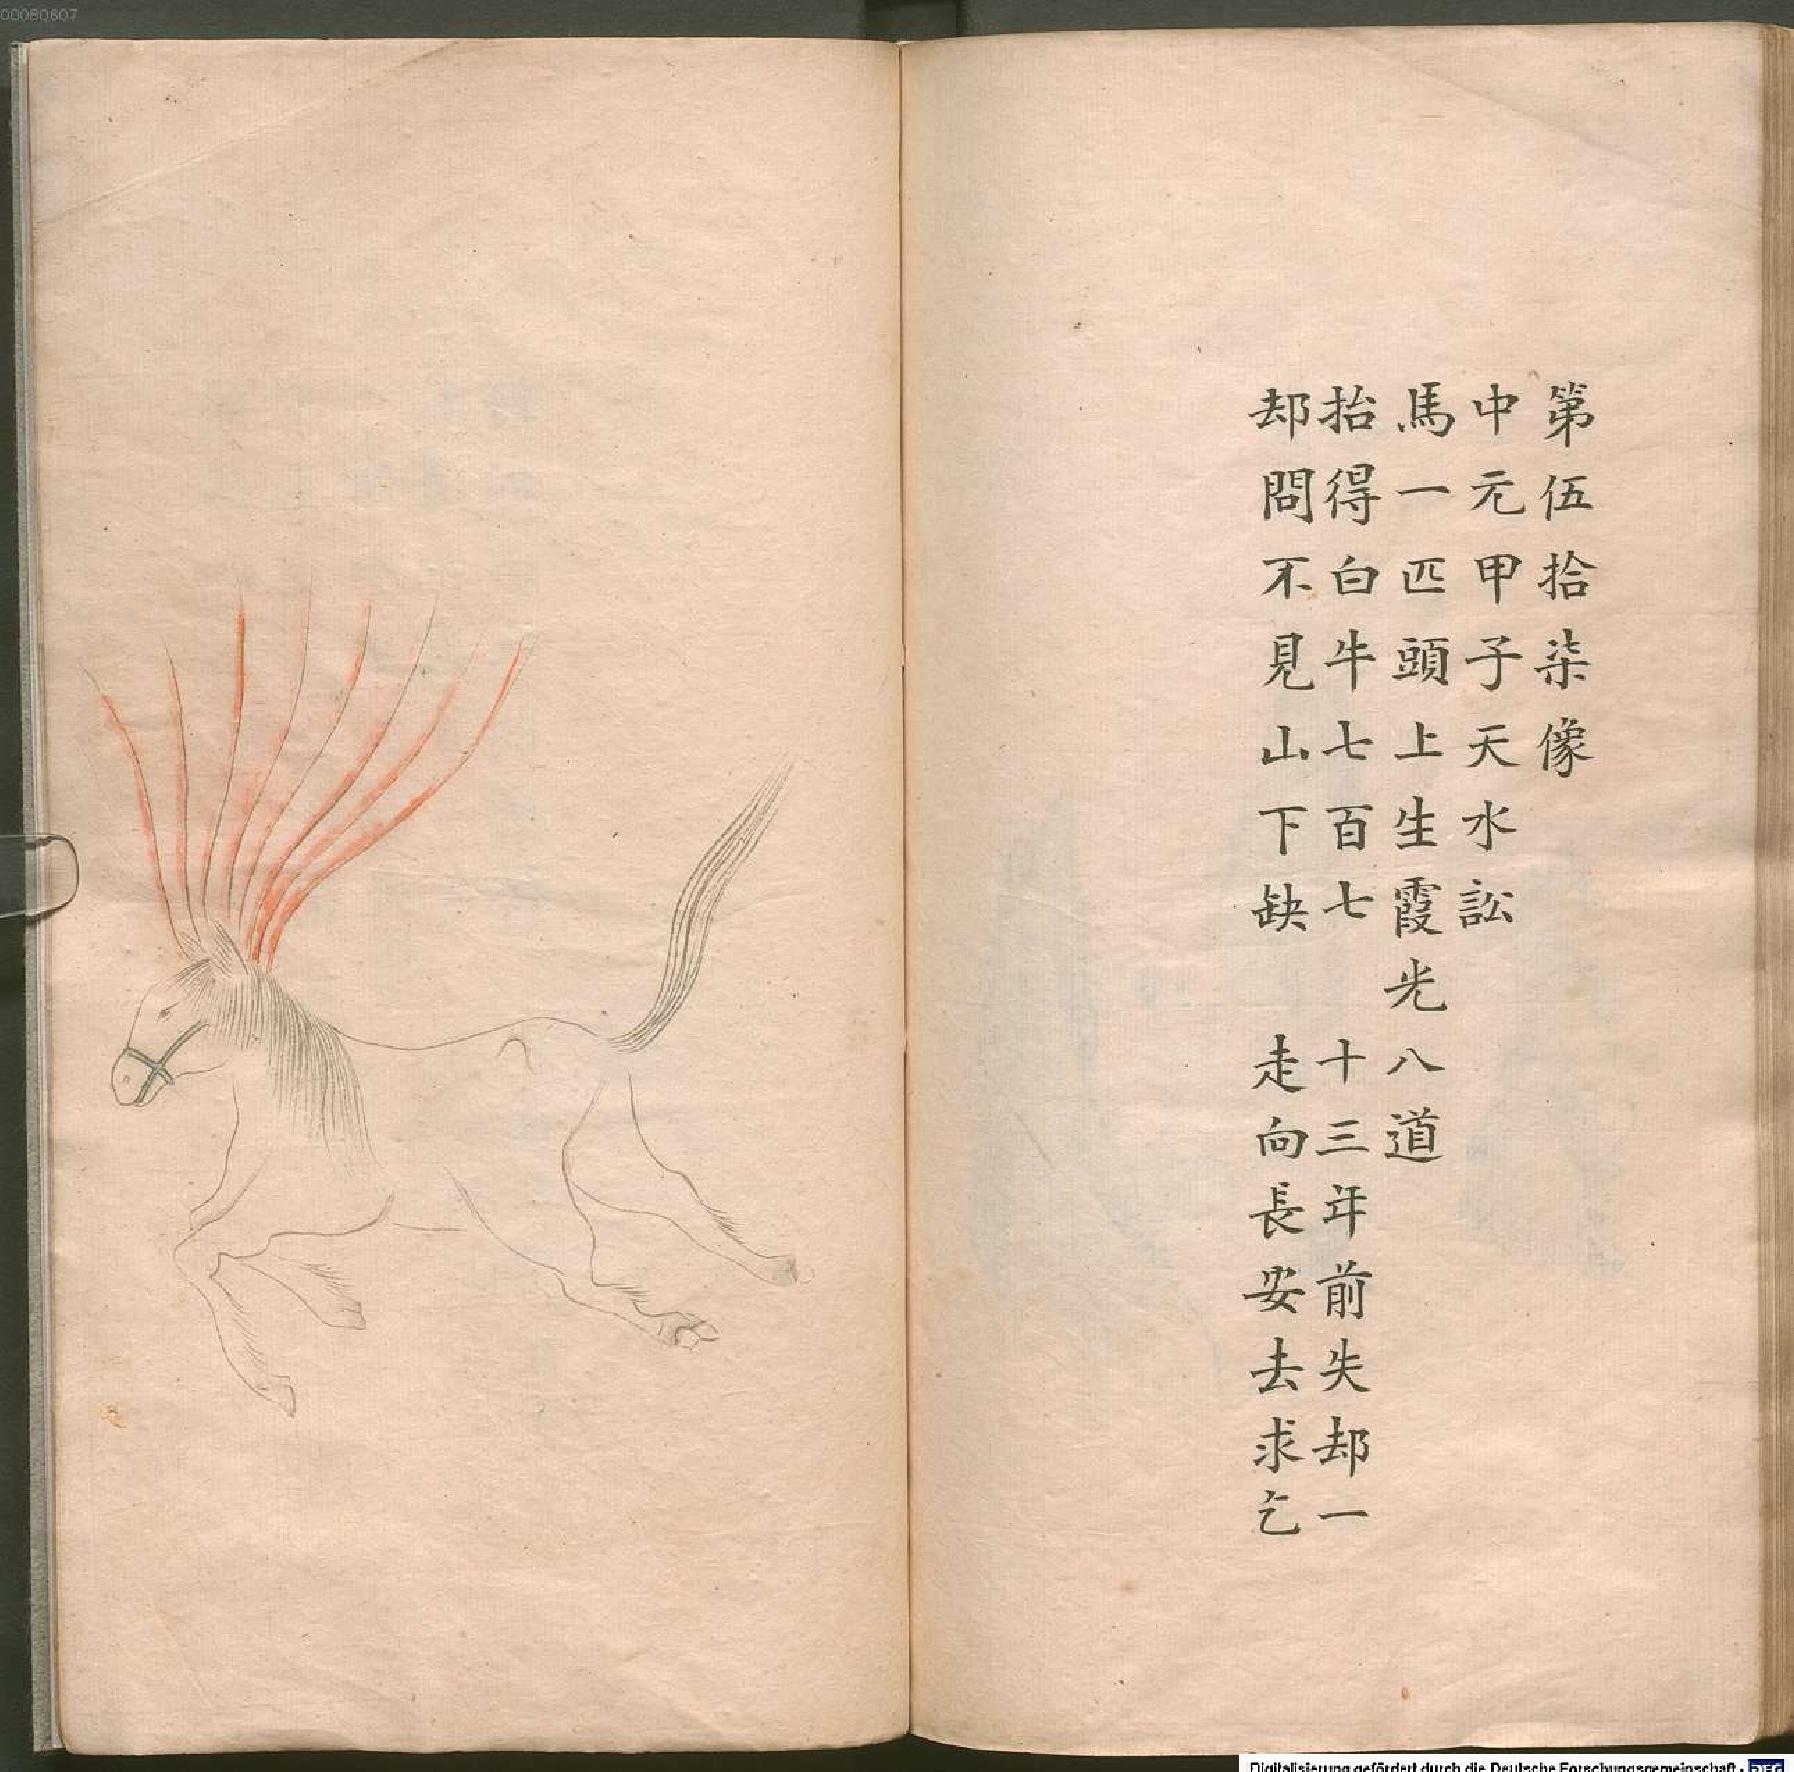 00080607
第伍拾柒像
中元甲子天水訟
馬一匹頭上生霞光八道
抬得白牛七百七 十三年前失却一
却問不見山下缺 走向長安去求乞
Digitalisierung gefördert durch die Deutsche Forschungsgemeinschaft - DFG